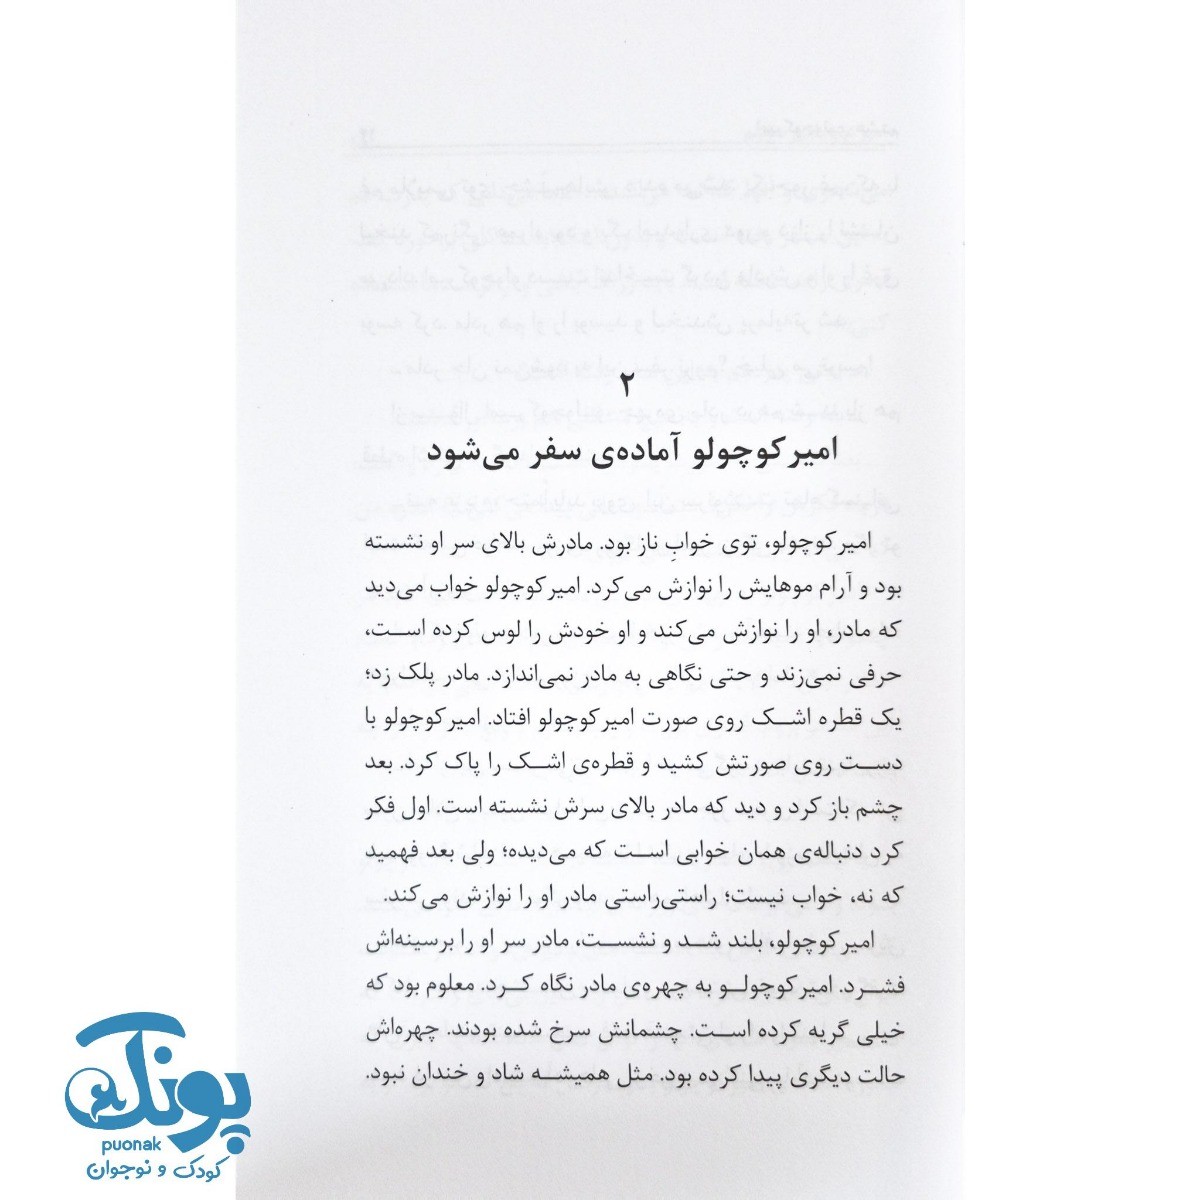 ۲
امیرکوچولو آماده‌ی سفر می‌شود
امیرکوچولو، توی خوابِ ناز بود. مادرش بالای سر او نشسته
بود و آرام موهایش را نوازش می‌کرد. امیرکوچولو خواب می‌دید
که مادر، او را نوازش می‌کند و او خودش را لوس کرده است،
حرفی نمی‌زند و حتی نگاهی به مادر نمی‌اندازد. مادر پلک زد؛
یک قطره اشک روی صورت امیرکوچولو افتاد. امیرکوچولو با
دست روی صورتش کشید و قطره‌ی اشک را پاک کرد. بعد
چشم باز کرد و دید که مادر بالای سرش نشسته است. اول فکر
کرد دنباله‌ی همان خوابی است که می‌دیده؛ ولی بعد فهمید
که نه، خواب نیست؛ راستی‌راستی مادر او را نوازش می‌کند.
امیرکوچولو، بلند شد و نشست، مادر سر او را برسینه‌اش
فشرد. امیرکوچولو به چهره‌ی مادر نگاه کرد. معلوم بود که
خیلی گریه کرده است. چشمانش سرخ شده بودند. چهره‌اش
حالت دیگری پیدا کرده بود. مثل همیشه شاد و خندان نبود.
پونک
puonak
کودک و نوجوان